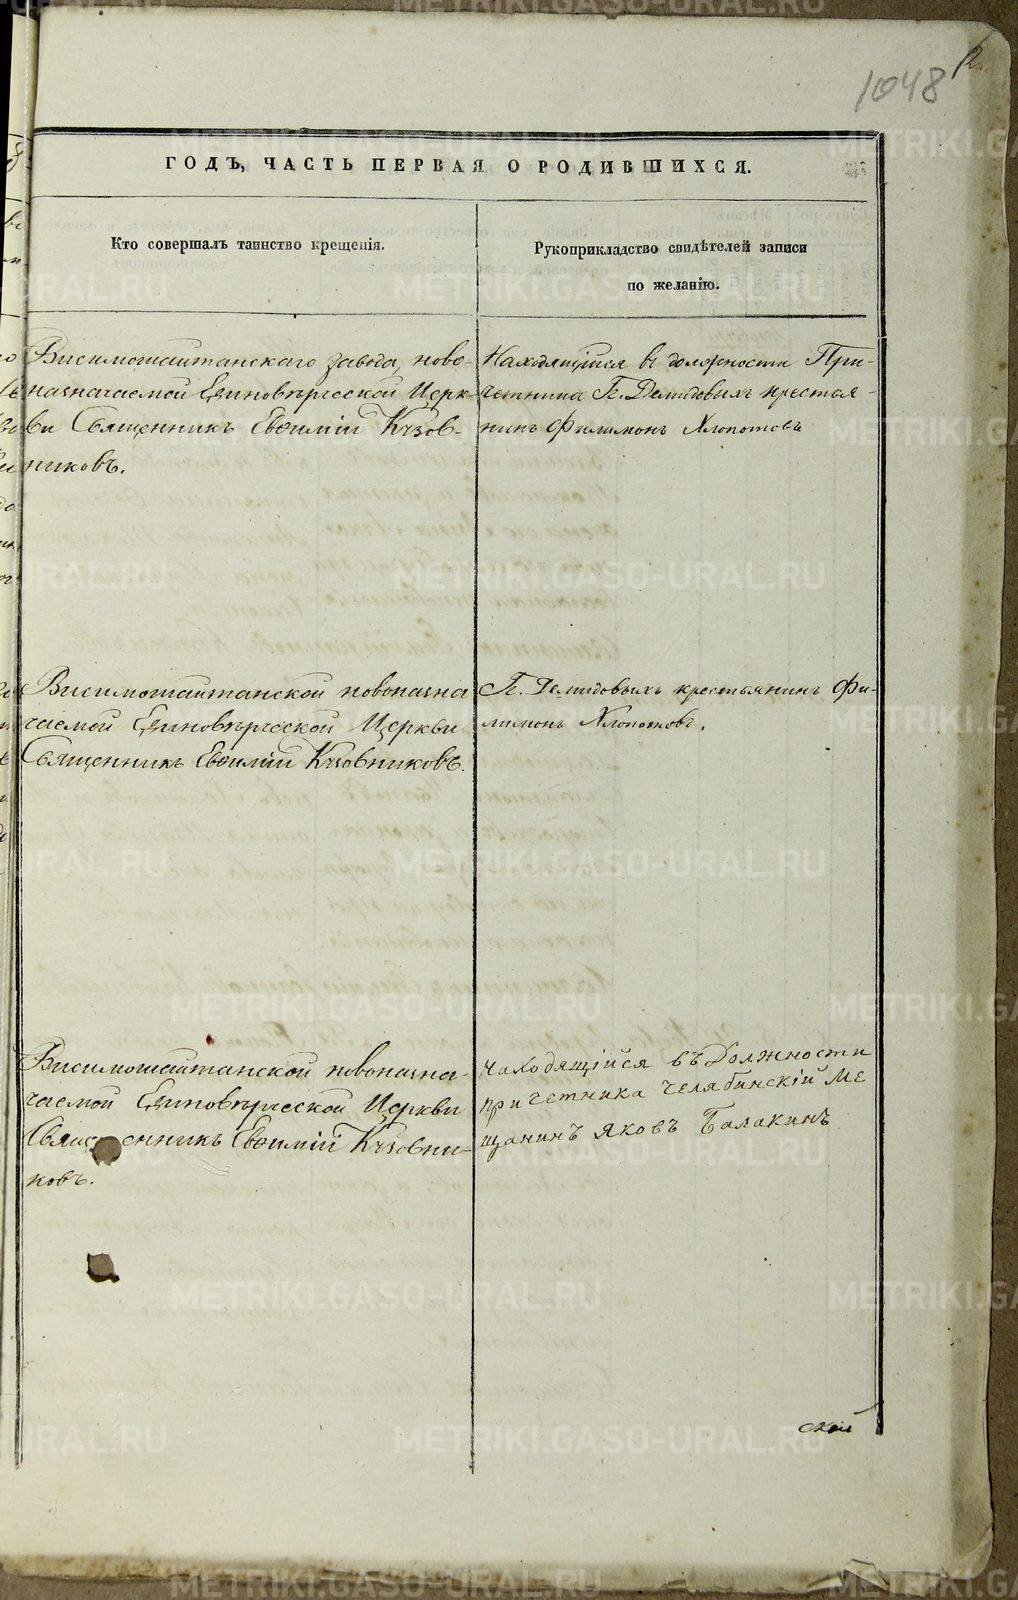 1048
ГОДЪ, ЧАСТЬ ПЕРВАЯ О РОДИВШИХСЯ.
Кто совершалъ таинство крещенія.
Рукоприкладство свидѣтелей записи
по желанію.
Висимошайтанскаго завода, ново-
назначаемой Единовѣрческой Церк-
ви Священникъ Евѳимій Кузов-
никовъ.
Находящійся въ должности При-
четника Г. Демидовыхъ крестья-
нинъ Филимонъ Хлопотовъ
Висимошайтанской новоназна
чаемой Единовѣрческой Церкви
Священникъ Евѳимій Кузовниковъ.
Г. Демидовыхъ крестьянинъ Фи-
лимонъ Хлопотовъ.
Висимошайтанской новоназна-
чаемой Единовѣрческой Церкви
Священникъ Евѳимій Кузовни-
ковъ.
находящійся въ Должности
причетника челябинскій Ме
щанинъ яковъ Балакинъ
ской
METRIKI.GASO-URAL.RU